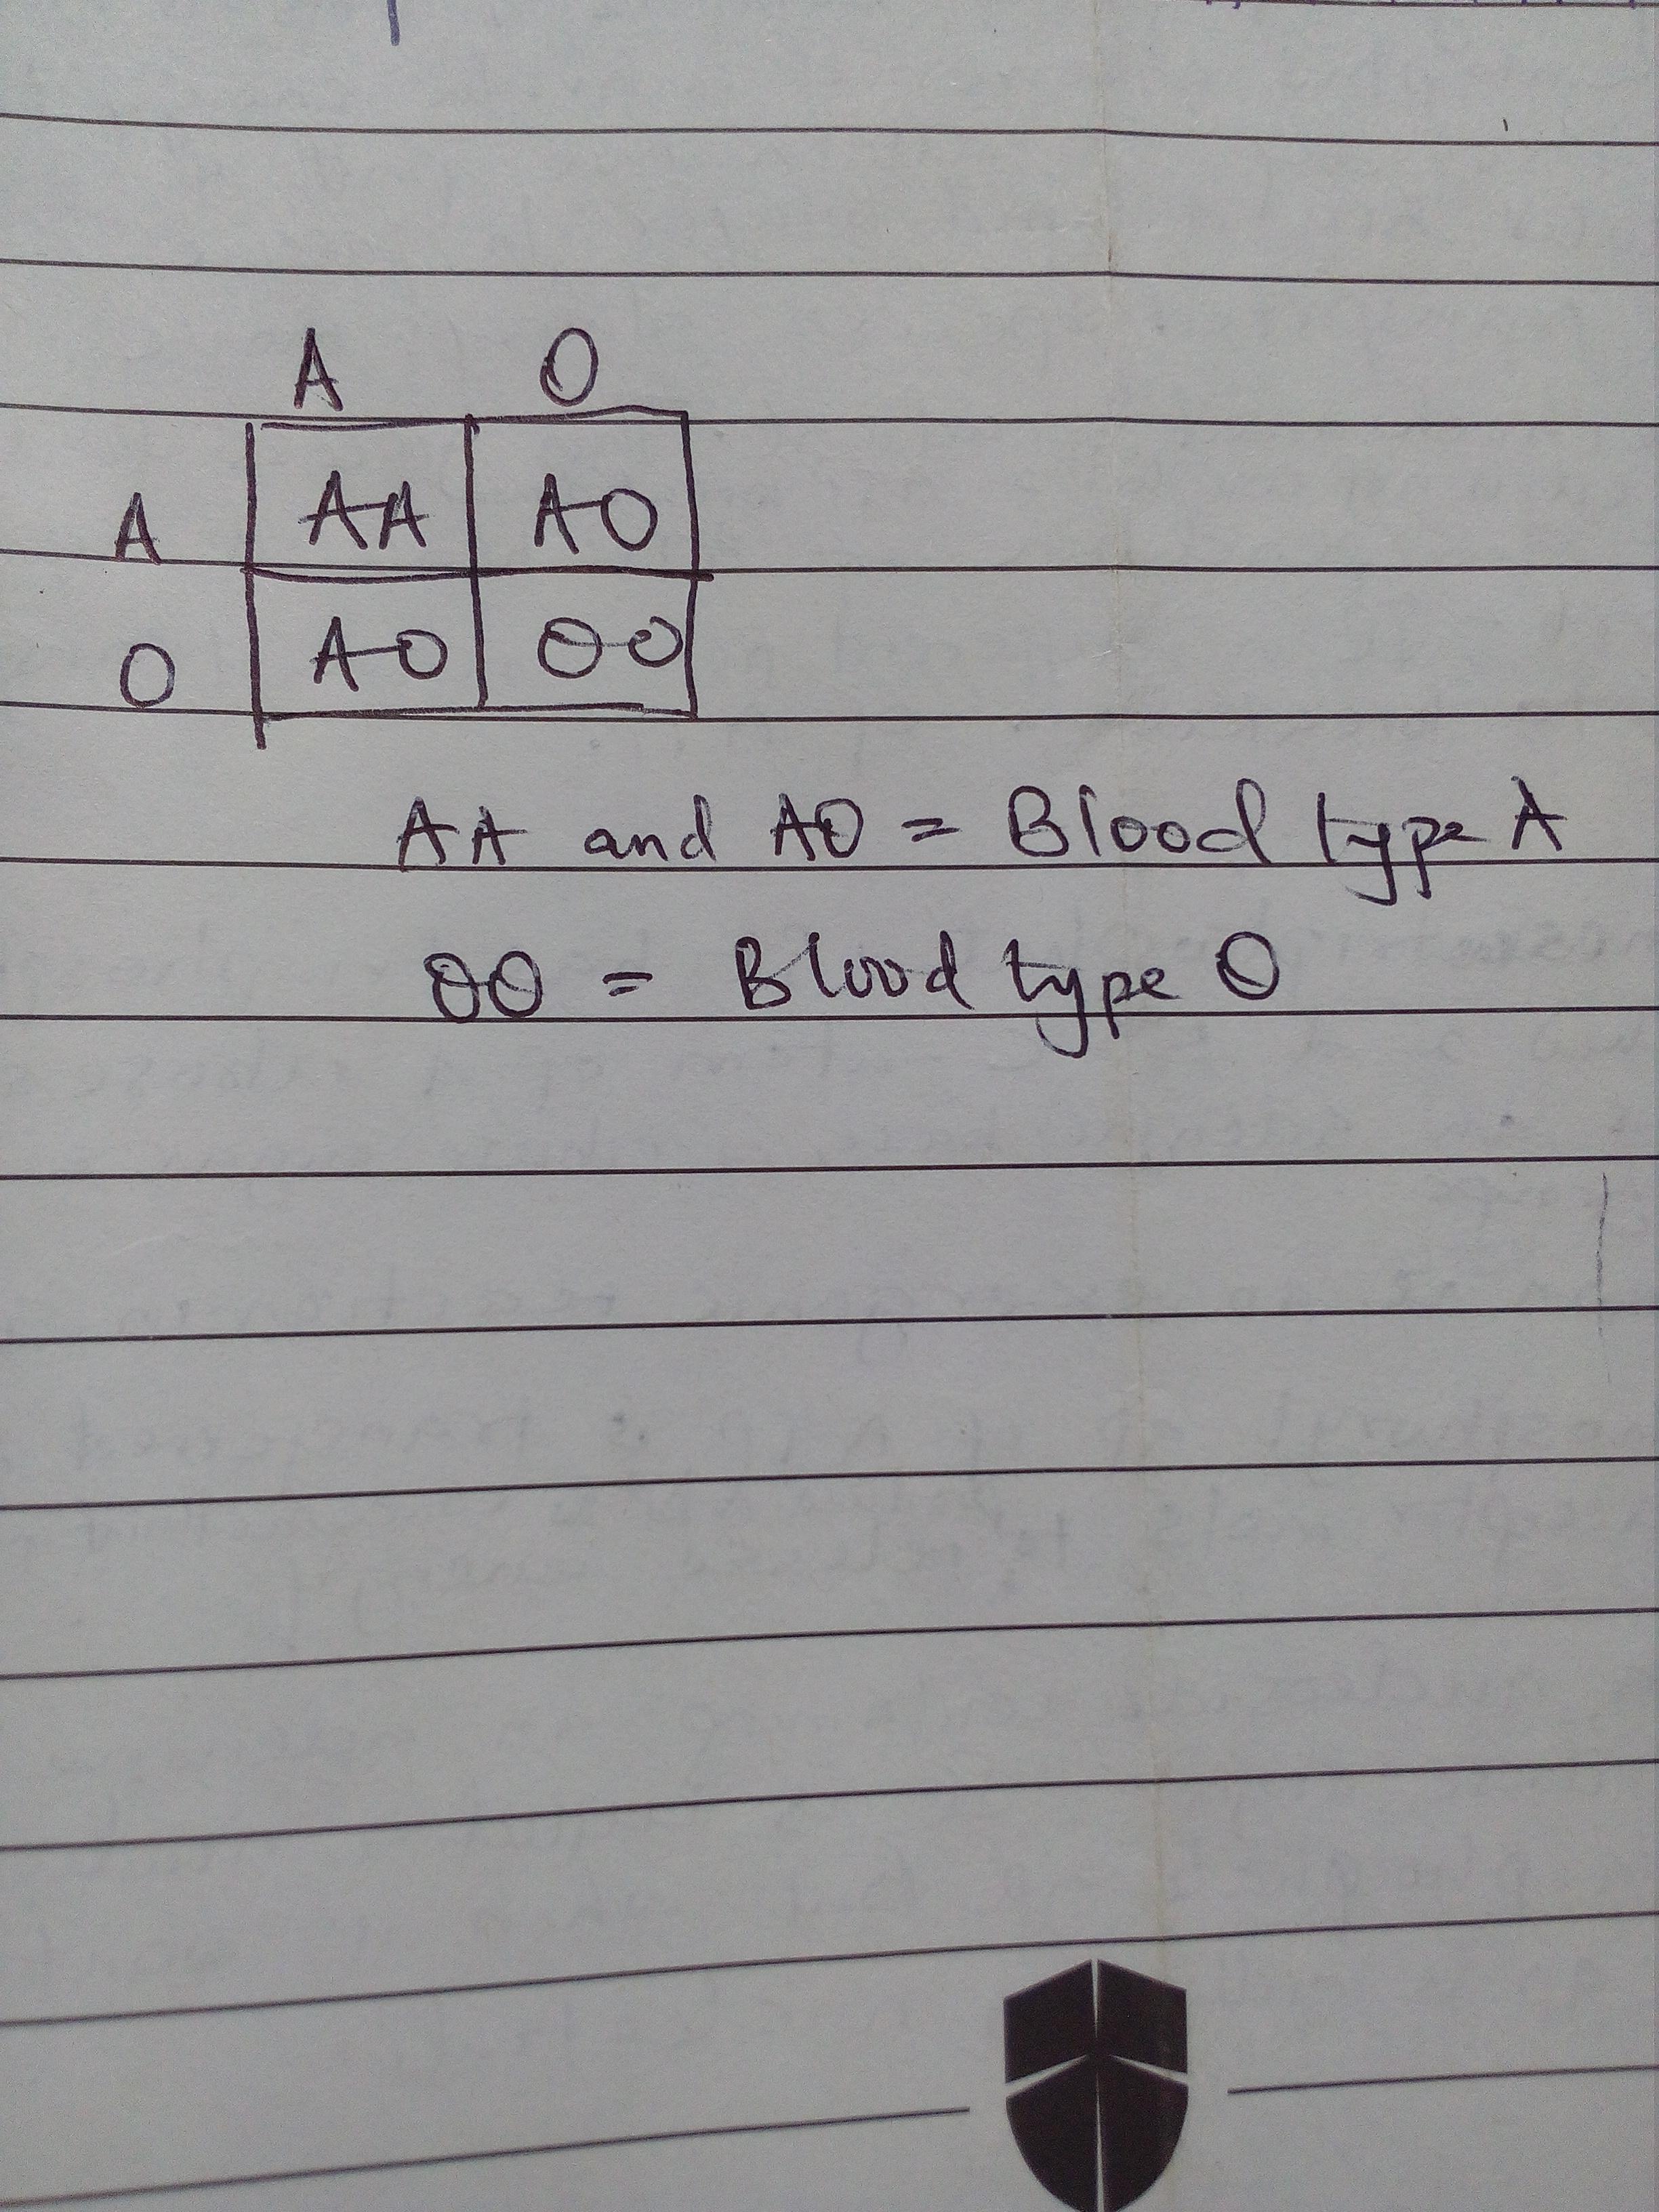 A O
A AA AO
O AO OO
AA and AO = Blood type A
OO = Blood type O